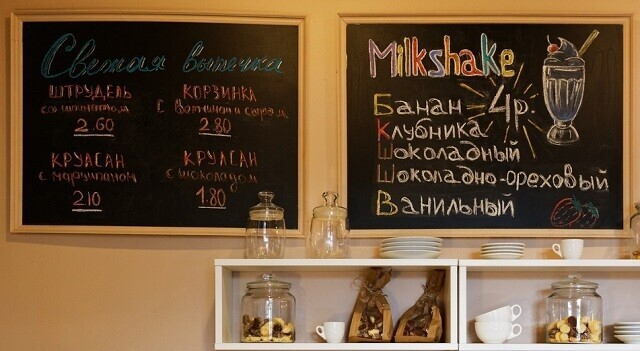 Свежая выпечка
ШТРУДЕЛЬ
со шпинатом
2.60
КОРЗИНКА
с ветчиной и сыром
2.80
КРУАСАН
с марципаном
2.10
КРУАСАН
с шоколадом
1.80
Milkshake
Банан
4р.
Клубника
Шоколадный
Шоколадно-ореховый
Ванильный